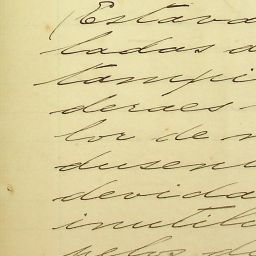 (Estava
ladas a
tampi
deraes
lor de
dusen
devida
inutili
pelos de